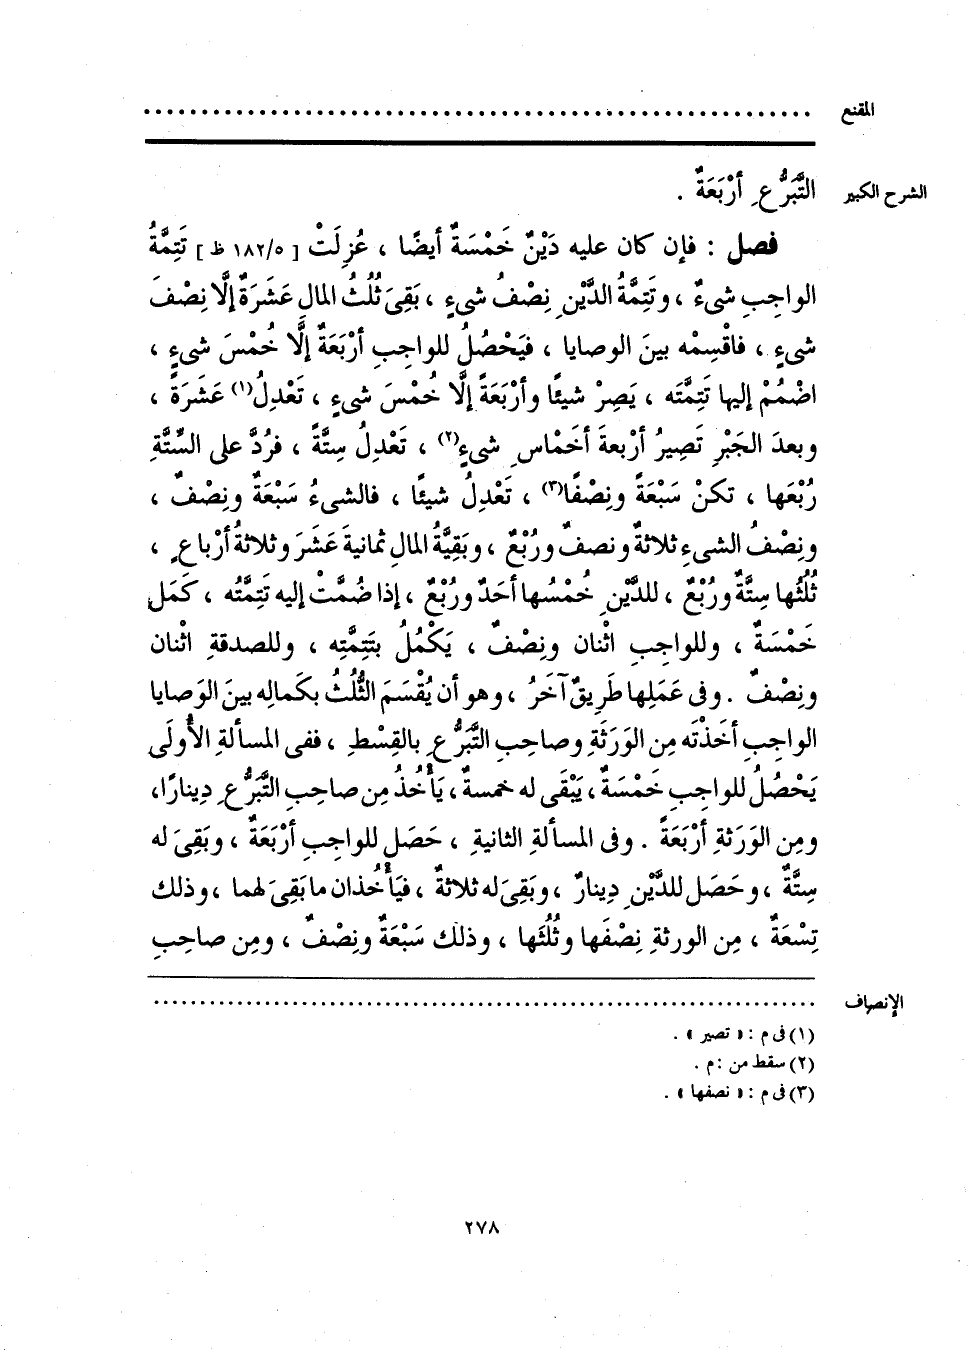 المقنع ................................................
الشرح الكبير
التَّبَرُّعِ أرْبَعَةٌ .
فصل : فإن كان عليه دَيْنٌ خَمْسَةٌ أيضًا ، عُزِلَتْ [ ١٨٢/٥ ظ ] تَتِمَّةُ
الواجِبِ شىءٌ ، وتَتِمَّةُ الدَّيْنِ نِصْفُ شىءٍ ، بَقِىَ ثُلُثُ المالِ عَشَرَةٌ إلَّا نِصْفَ
شىءٍ ، فاقْسِمْه بينَ الوصايا ، فيَحْصُلُ للواجبِ أرْبَعَةٌ إلَّا خُمْسَ شىءٍ ،
اضْمُمْ إليها تَتِمَّتَه ، يَصِرْ شيئًا وأرْبَعَةً إلَّا خُمْسَ شىءٍ ، تَعْدِلُ(١) عَشَرَةً ،
وبعدَ الجَبْرِ تَصِيرُ أرْبعةَ أخْماسِ شىءٍ(٢) ، تَعْدِلُ سِتَّةً ، فرُدَّ على السِّتَّةِ
رُبْعَها ، تكنْ سَبْعَةً ونِصْفًا(٣) ، تَعْدِلُ شيئًا ، فالشىءُ سَبْعَةٌ ونِصْفٌ ،
ونِصْفُ الشىءِ ثلاثةٌ ونصفٌ ورُبْعٌ ، وبَقِيَّةُ المالِ ثمانيةَ عَشَرَ وثلاثةُ أرْباعٍ ،
ثُلُثُها سِتَّةٌ ورُبْعٌ ، للدَّيْنِ خُمْسُها أحَدٌ ورُبْعٌ ، إذا ضُمَّتْ إليه تَتِمَّتُه ، كَمَل
خَمْسَةٌ ، وللواجِبِ اثْنان ونِصْفٌ ، يَكْمُلُ بتَتِمَّتِه ، وللصدقةِ اثْنان
ونِصْفٌ . وفى عَمَلِها طَرِيقٌ آخَرُ ، وهو أن يُقْسَمَ الثُّلُثُ بكَمالِه بينَ الوَصايا
الواجبِ أخَذْتَه مِن الوَرَثَةِ وصاحِبِ التَّبَرُّعِ بالقِسْطِ ، ففى المسألةِ الأُولَى
يَحْصُلُ للواجبِ خَمْسَةٌ ، يَبْقَى له خمسةٌ ، يَأْخُذُ مِن صاحِبِ التَّبَرُّعِ دِينارًا،
ومِن الوَرَثةِ أرْبَعَةً . وفى المسألةِ الثانيةِ ، حَصَل للواجِبِ أرْبَعَةٌ ، وبَقِىَ له
سِتَّةٌ ، وحَصَل للدَّيْنِ دِينارٌ ، وبَقِىَ له ثلاثةٌ ، فيَأْخُذان ما بَقِىَ لهما ، وذلك
تِسْعَةٌ ، مِن الورثةِ نِصْفَها وثُلُثَها ، وذلك سَبْعَةٌ ونِصْفٌ ، ومِن صاحِبِ
الإنصاف ................................................
(١) فى م : « تصير » .
(٢) سقط من : م .
(٣) فى م : « نصفها » .
٢٧٨